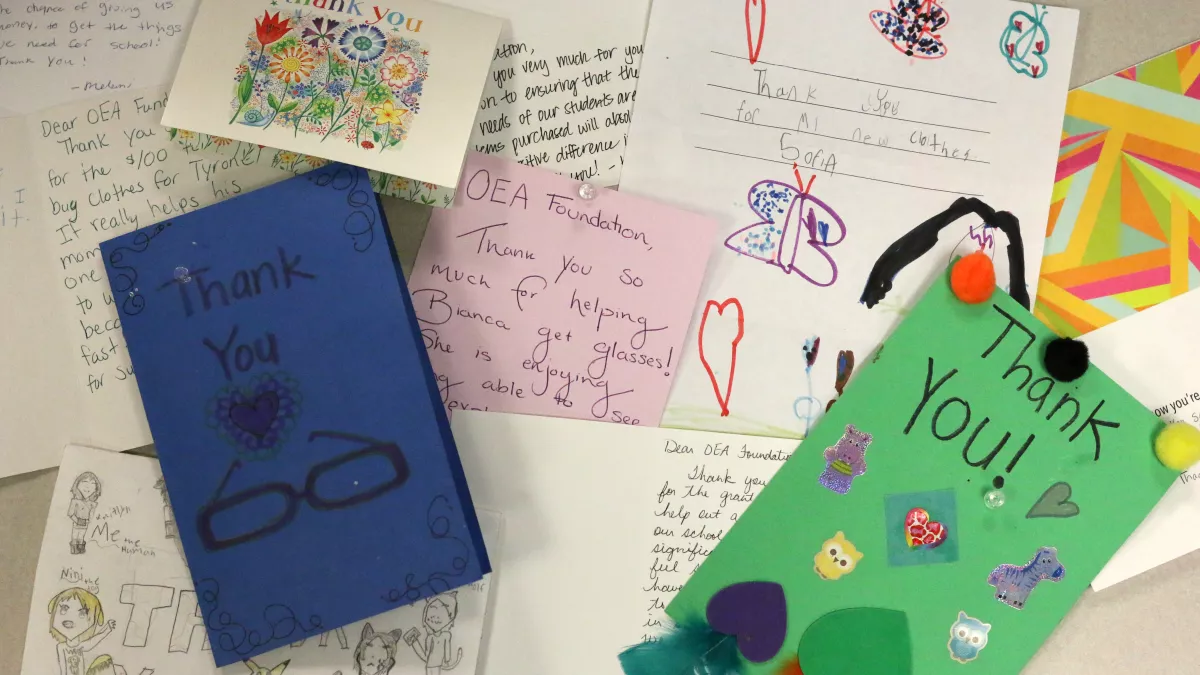 the chance of giving us
money. to get the things
we need for school!
Thank You!
- Melani
thank you
you very much for you
on to ensuring that the
needs of our students are
ems purchased will absol
itive difference i
you! -
Thank you
for MI new clothes.
SofiA
Dear OEA Fund
Thank you
for the $100
bug clothes for Tyrone
It really helps his
mom
one
to u
beca
fast
for su
I
it.
Thank
You
OEA Foundation,
Thank you so
much for helping
Bianca get glasses!
She is enjoying
able to see
Thank
You!
ow you're
Dear OEA Foundatio
Thank you
for the grant
help out a
our school
significa
feel s
howe
tr
in
Me me
Human
Nini me
TH